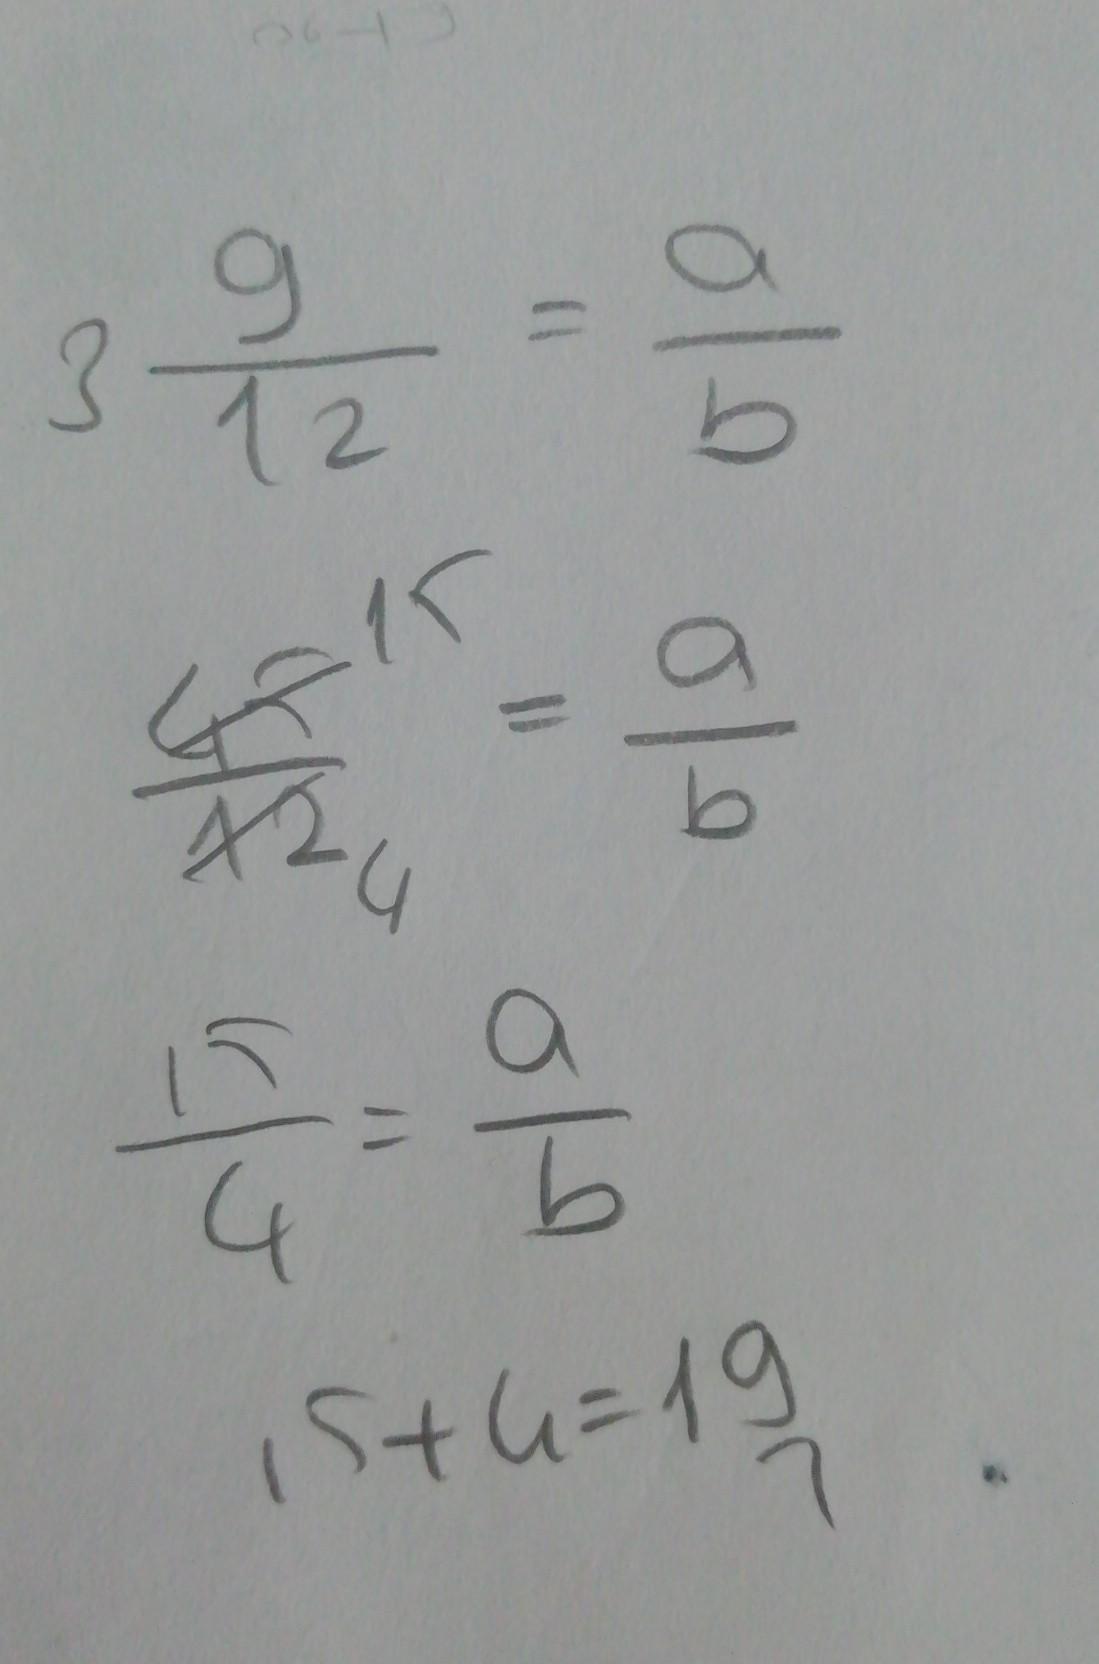 3 9/12 = a/b
45/12 15/4 = a/b
15/4 = a/b
15+4=19